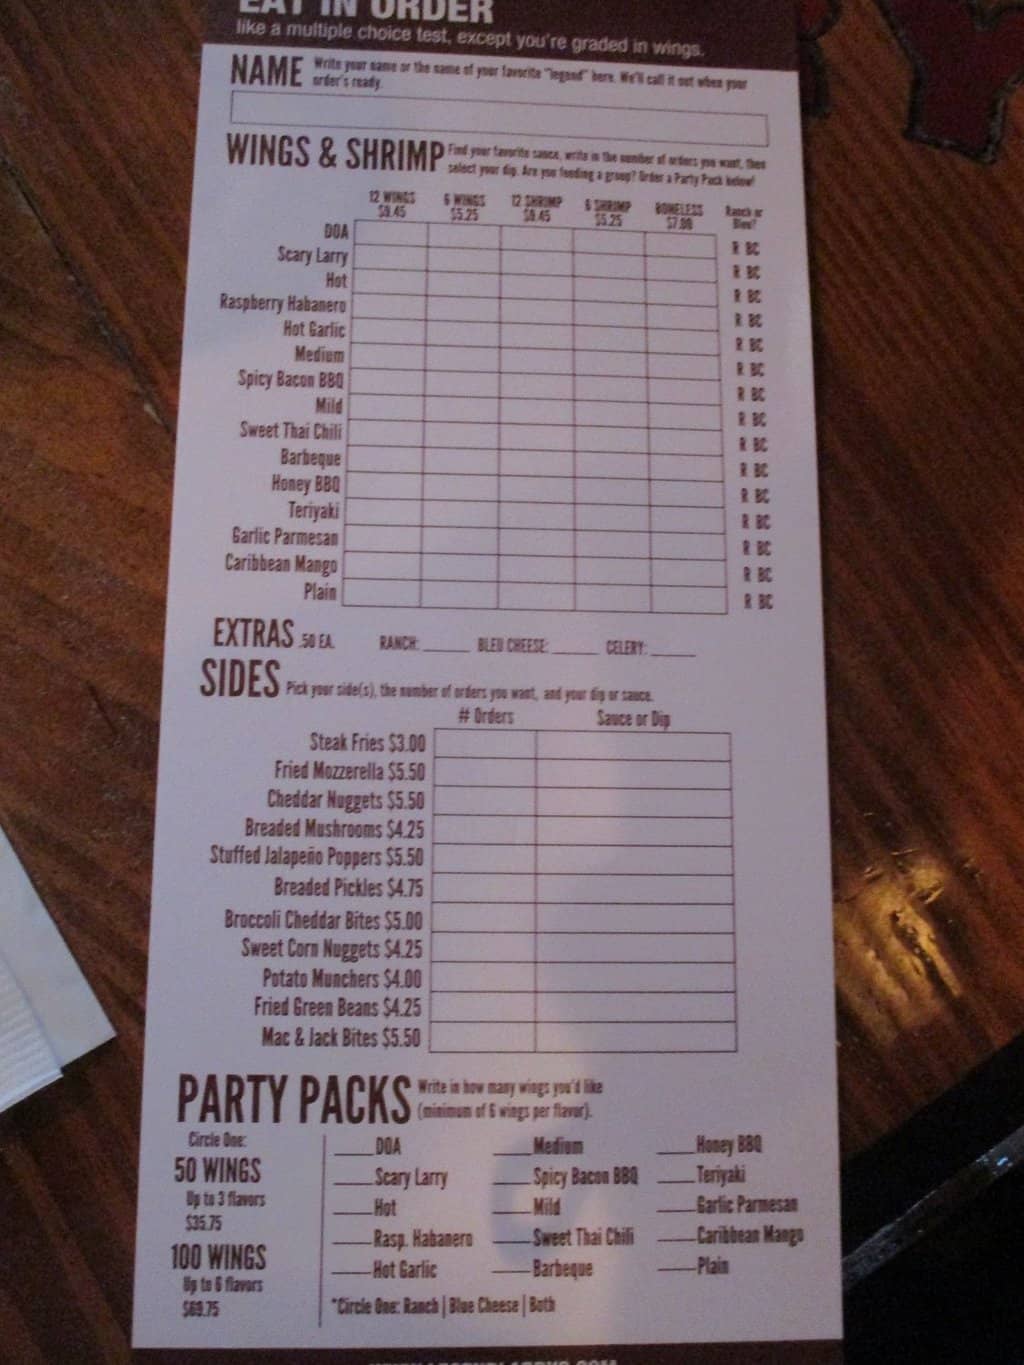 EAT IN ORDER
like a multiple choice test, except you're graded in wings.
NAME Write your name or the name of your favorite "legend" here. We'll call it out when your
order's ready.
WINGS & SHRIMP Find your favorite sauce, write in the number of orders you want, then
select your dip. Are you feeding a group? Order a Party Pack below!
12 WINGS 6 WINGS 12 SHRIMP 6 SHRIMP BONELESS Ranch or
$9.45 $5.25 $9.45 $5.25 Bleu?
DOA R BC
Scary Larry R BC
Hot R BC
Raspberry Habanero R BC
Hot Garlic R BC
Medium R BC
Spicy Bacon BBQ R BC
Mild R BC
Sweet Thai Chili R BC
Barbeque R BC
Honey BBQ R BC
Teriyaki R BC
Garlic Parmesan R BC
Caribbean Mango R BC
Plain R BC
EXTRAS .50 EA. RANCH: BLEU CHEESE: CELERY:
SIDES Pick your side(s), the number of orders you want, and your dip or sauce.
# Orders Sauce or Dip
Steak Fries $3.00
Fried Mozzerella $5.50
Cheddar Nuggets $5.50
Breaded Mushrooms $4.25
Stuffed Jalapeño Poppers $5.50
Breaded Pickles $4.75
Broccoli Cheddar Bites $5.00
Sweet Corn Nuggets $4.25
Potato Munchers $4.00
Fried Green Beans $4.25
Mac & Jack Bites $5.50
PARTY PACKS Write in how many wings you'd like
(minimum of 6 wings per flavor).
Circle One:
50 WINGS
Up to 3 flavors
$35.75
100 WINGS
Up to 6 flavors
$69.75
DOA Medium Honey BBQ
Scary Larry Spicy Bacon BBQ Teriyaki
Hot Mild Garlic Parmesan
Rasp. Habanero Sweet Thai Chili Caribbean Mango
Hot Garlic Barbeque Plain
*Circle One: Ranch | Blue Cheese | Both